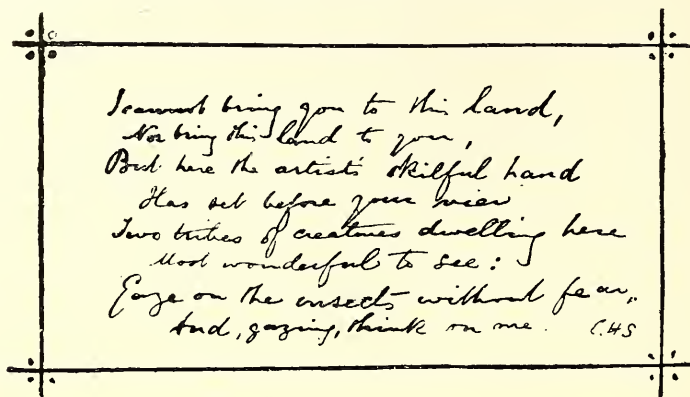 I cannot bring you to this land,
Nor bring this land to you,
But here the artist's skilful hand
Has set before your view
Two tribes of creatures dwelling here
Most wonderful to see:
Gaze on the insects without fear,
And, gazing, think on me. C.H.S